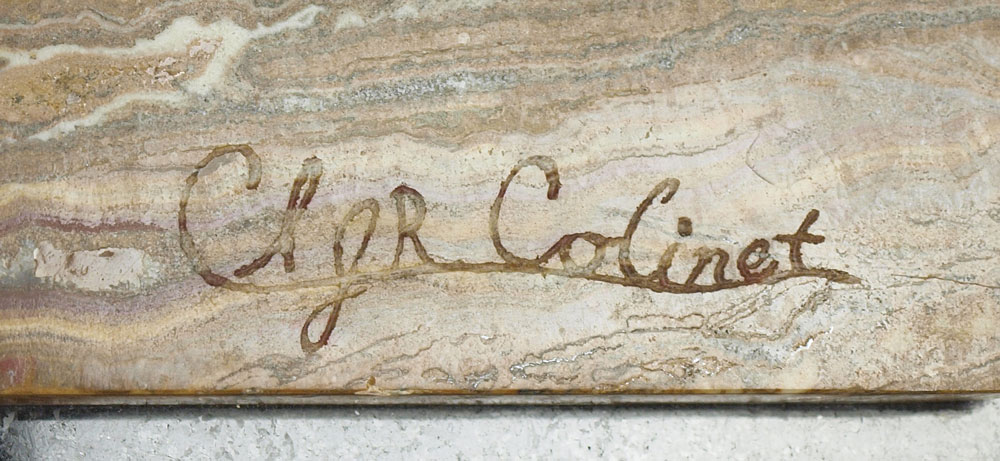 Cl JR Colinet